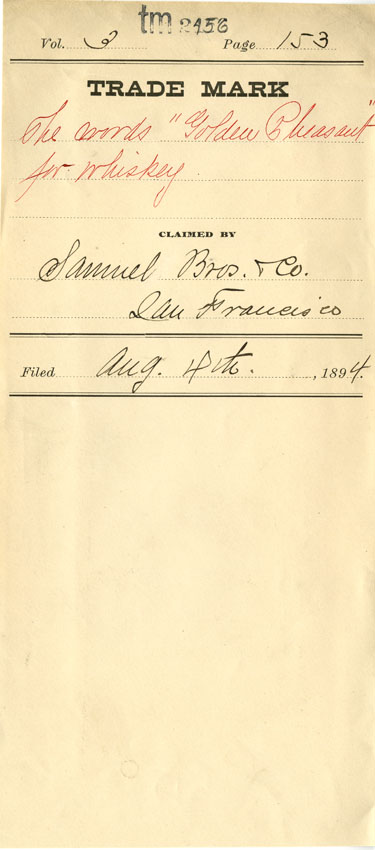 tm 2456
Vol. 3 Page 153
TRADE MARK
The words "Golden Pheasant"
for whiskey
CLAIMED BY
Samuel Bros. & Co.
San Francisco
Filed Aug. 4th. , 1894.